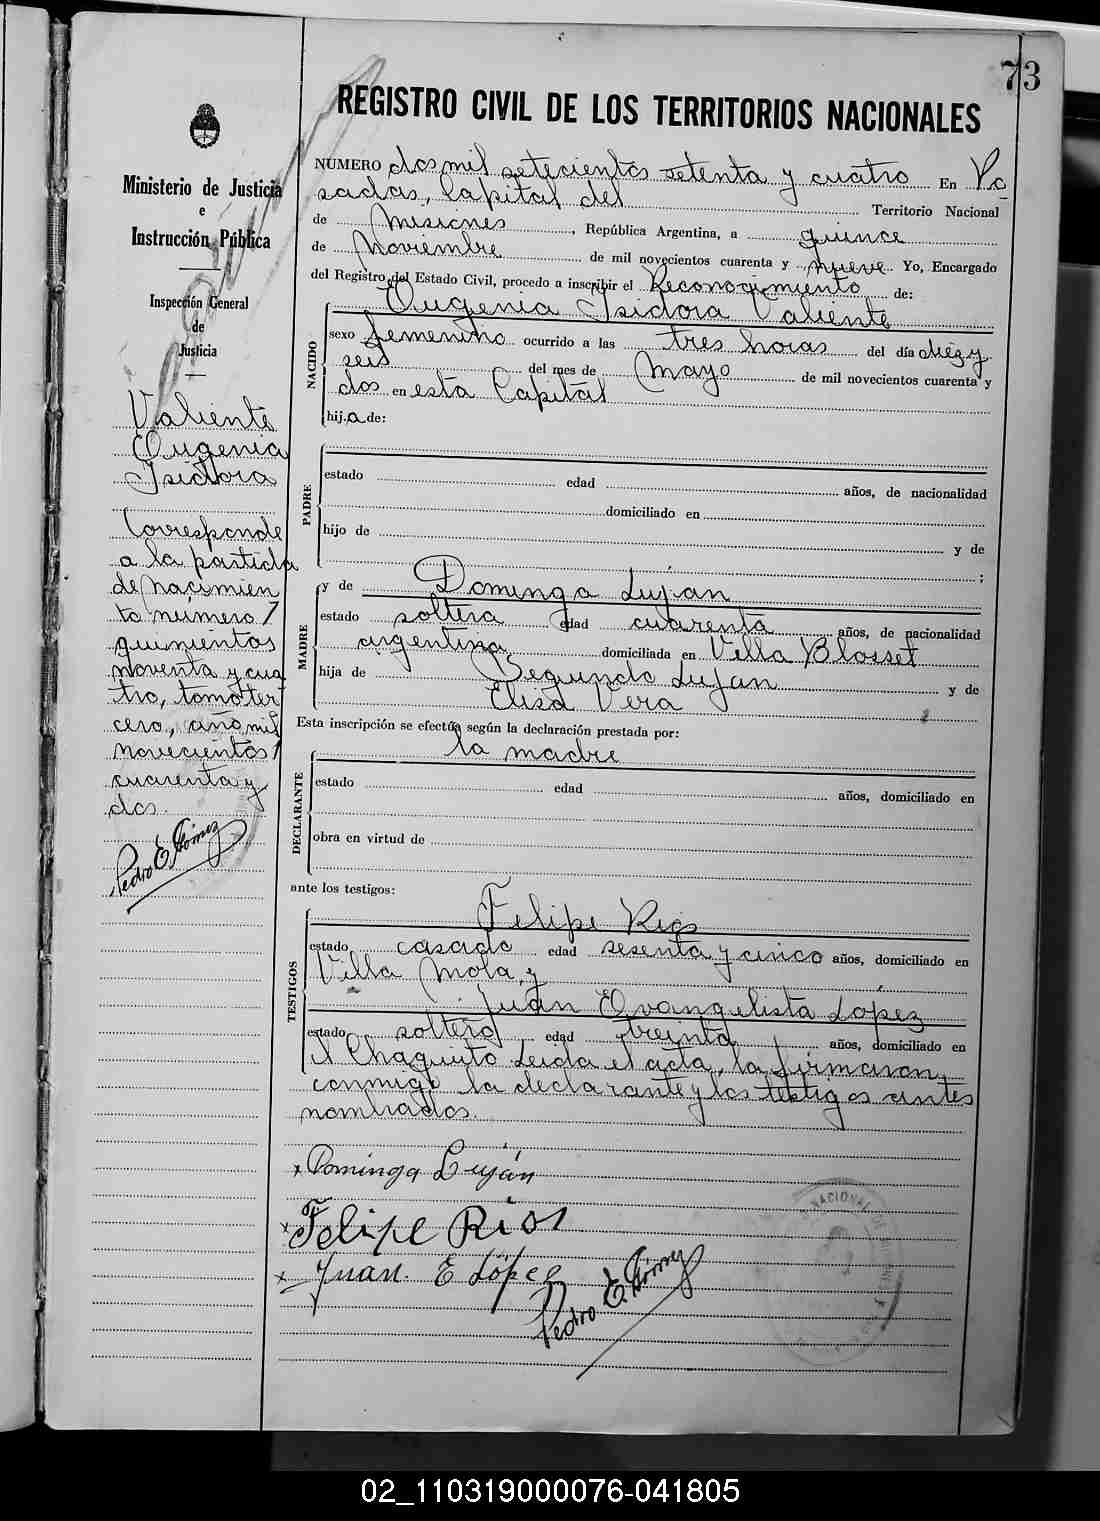 73
REGISTRO CIVIL DE LOS TERRITORIOS NACIONALES
Ministerio de Justicia
e
Instrucción Pública
Inspección General
de
Justicia
Valiente
Eugenia
Isidora
Corresponde
a la partida
de nacimien
to número
quinientos
noventa y cua
tro, tomo ter
cero, año mil
novecientos
cuarenta y
dos.
Pedro E. Gómez
NUMERO dos mil setecientos setenta y cuatro En Po
sadas, Capital del Territorio Nacional
de Misiones, República Argentina, a quince
de Noviembre de mil novecientos cuarenta y nueve Yo, Encargado
del Registro del Estado Civil, procedo a inscribir el Reconocimiento de:
NACIDO
Eugenia Isidora Valiente
sexo femenino ocurrido a las tres horas del día diez y
seis del mes de Mayo de mil novecientos cuarenta y
dos en esta Capital
hija de:
PADRE
estado edad años, de nacionalidad
domiciliado en
hijo de y de
;
MADRE
y de Dominga Luján
estado soltera edad cuarenta años, de nacionalidad
argentina domiciliada en Villa Blosset
hija de Segundo Luján y de
Elisa Vera
Esta inscripción se efectúa según la declaración prestada por:
la madre
DECLARANTE
estado edad años, domiciliado en
obra en virtud de
ante los testigos:
TESTIGOS
Felipe Rios
estado casado edad sesenta y cinco años, domiciliado en
Villa Mola, y
Juan Evangelista López
estado soltero edad treinta años, domiciliado en
el Chaquito Leida el acta, la firmaron
conmigo la declarante y los testigos antes
nombrados.
x Dominga Luján
x Felipe Rios
x Juan. E López
Pedro E. Gómez
02_110319000076-041805